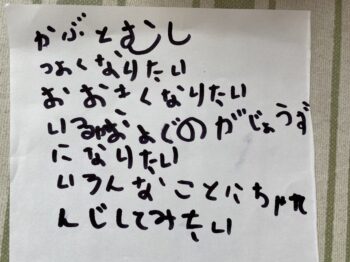 かぶとむし
つよくなりたい
おおきくなりたい
およぐのがじょうず
になりたい
いろんなことにちゃれ
んじしてみたい